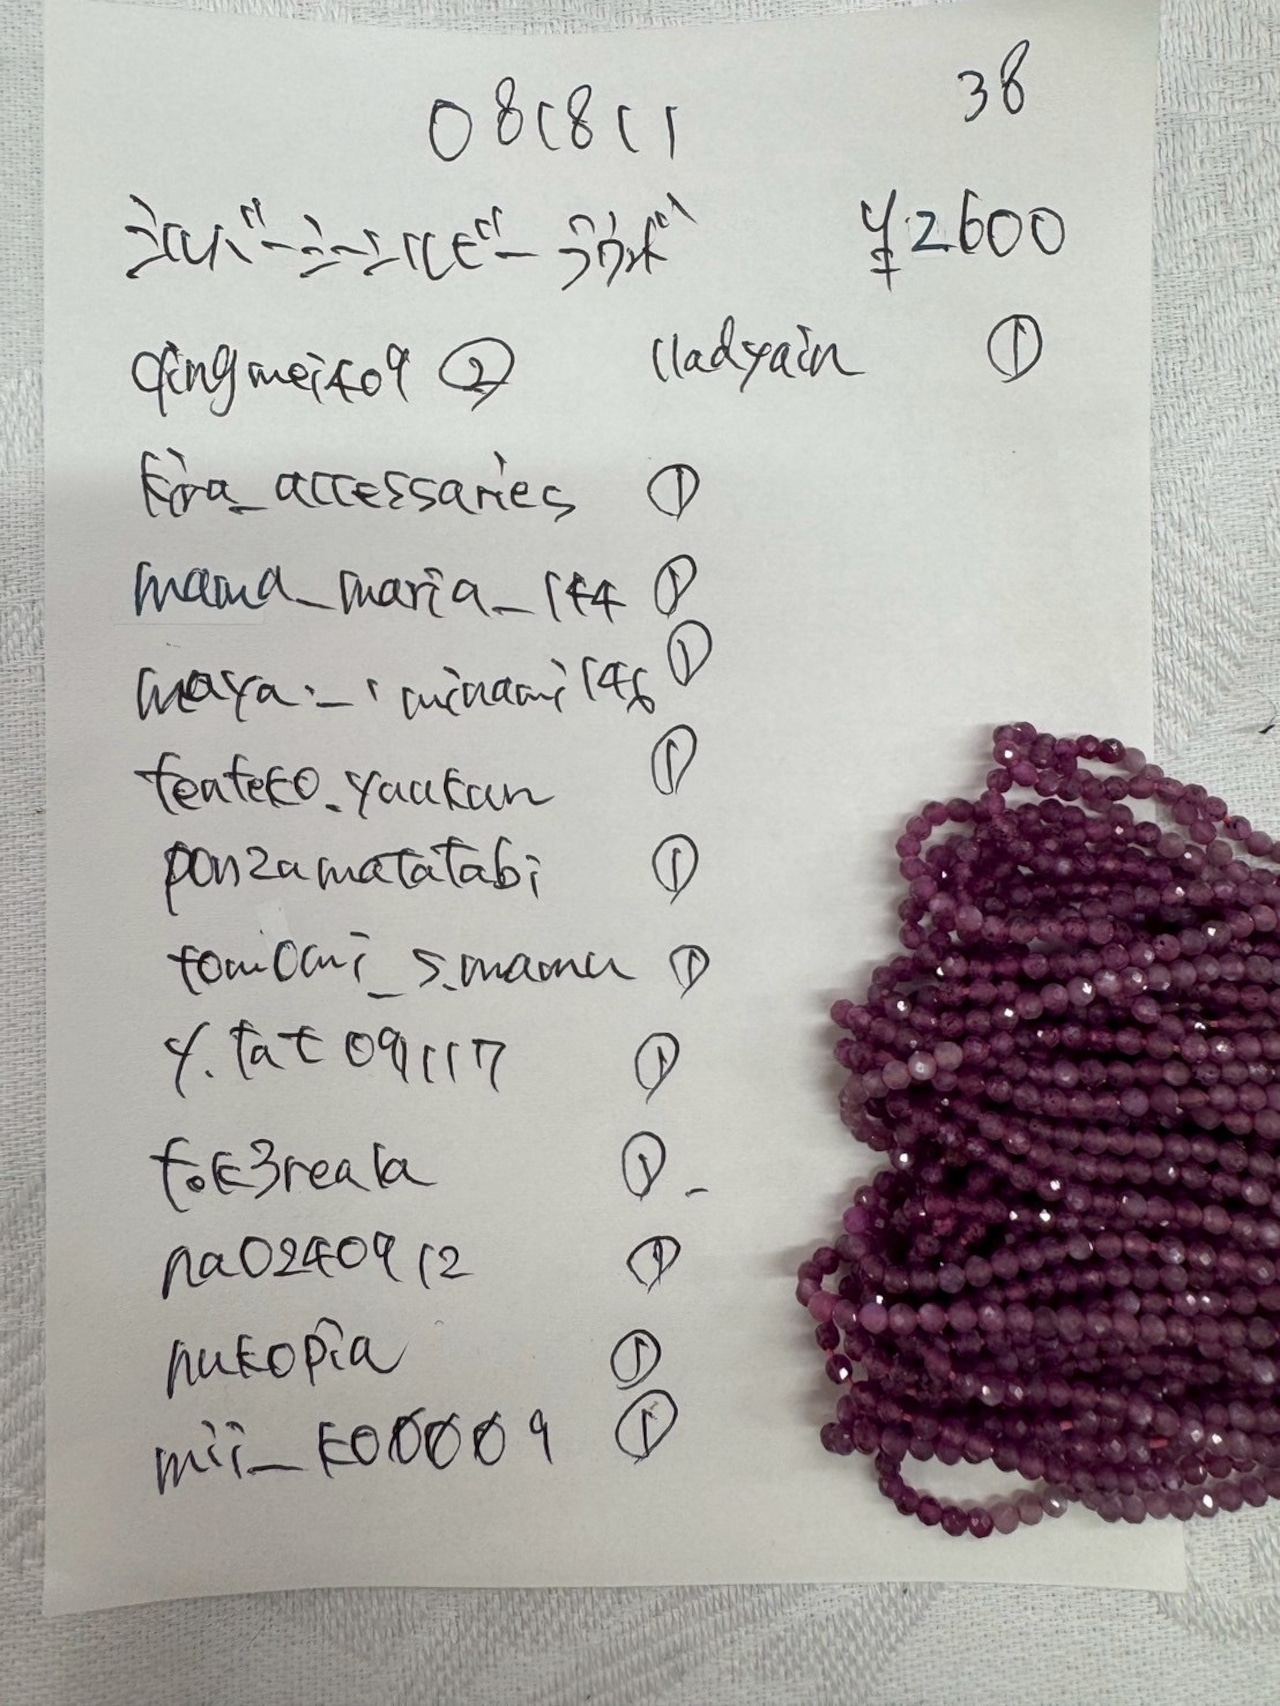 081811 38
シルバーシーンルビーラウンド ¥2600
qingmeiko9 ② lladyain ①
kira_accessaries ①
mama_maria_144 ①
maya._.minami146 ①
teateko.yaakan ①
ponzamatatabi ①
tomiomi_s.mama ①
y.tat091117 ①
tok3reala ①
na0240912 ①
nukopia ①
mii_k00009 ①